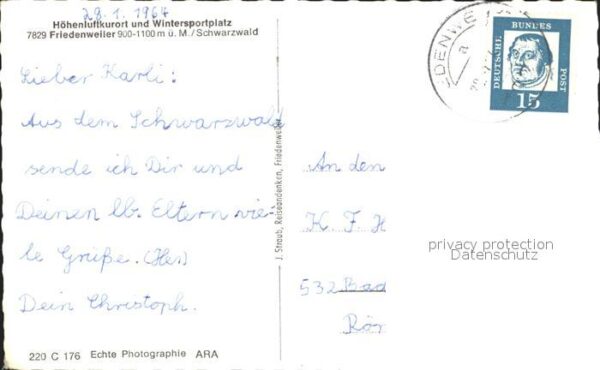 29.1.1964
Höhenluftkurort und Wintersportplatz
7829 Friedenweiler 900-1100 m ü. M./Schwarzwald
Lieber Karli:
Aus dem Schwarzwald
sende ich Dir und
Deinen lb. Eltern vie-
le Grüße. (Her.)
Dein Christoph.
220 C 176 Echte Photographie ARA
J. Straub, Reiseandenken, Friedenweiler
DEUTSCHE
BUNDES
POST
15
An den
K. F. H
532 Bad
Rön
privacy protection
Datenschutz